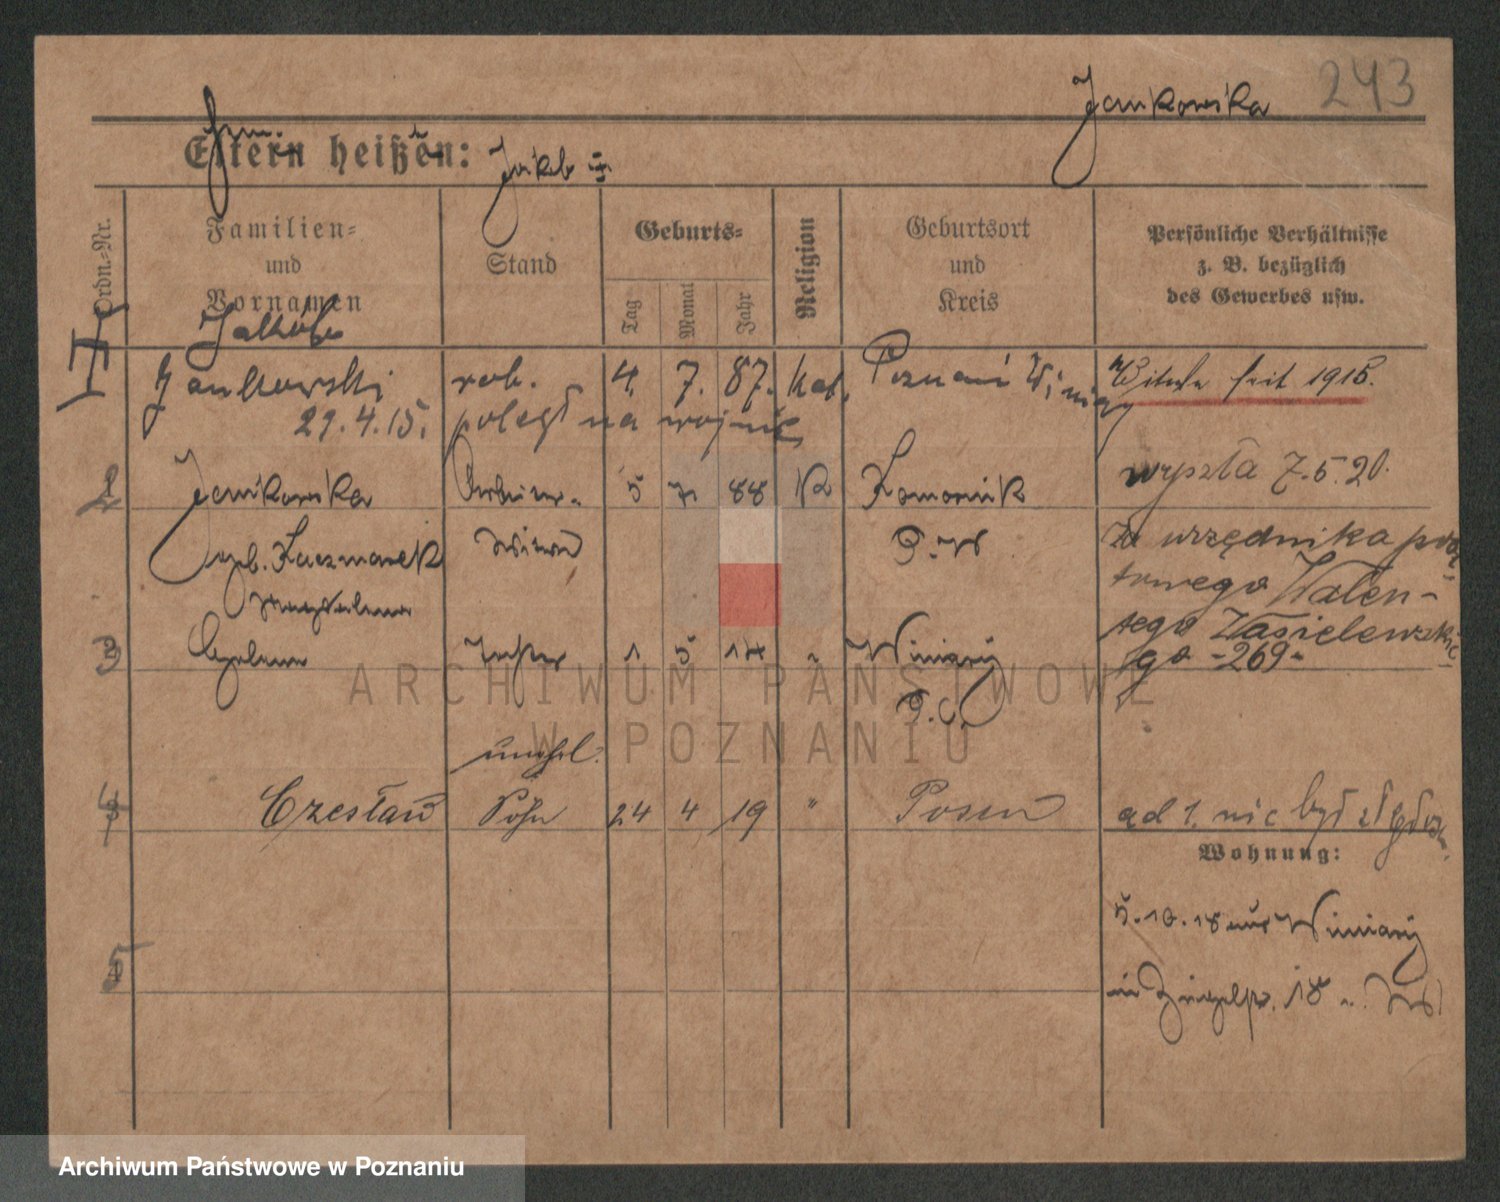 243
Jankowska
Eltern heißen: Jakob
Ordn.-Nr.
Familien- und Vornamen
Stand
Geburts-
Tag
Monat
Jahr
Religion
Geburtsort und Kreis
Persönliche Verhältnisse
z. B. bezüglich
des Gewerbes usw.
Jankowski rob. 4. 7. 87. kat. Poznań Winiary Witwe seit 1915.
29.4.15. poległ na wojnie
2 Jankowska 5 7 88 K Komornik wyszła 7.5.20.
geb. Kaczmarek Witwe P.W za urzędnika pocz-
Magdalena towego Walen-
tego Wasielewskie
3 Helena Tochter 1 5 14 " Winiary go -269-
P.O.
unehl.
4 Czesław Sohn 24 4 19 " Posen ad 1. nic był zgłosz.
Wohnung:
5.10.18 aus Winiary
5
in 18
ARCHIWUM PAŃSTWOWE
W POZNANIU
Archiwum Państwowe w Poznaniu